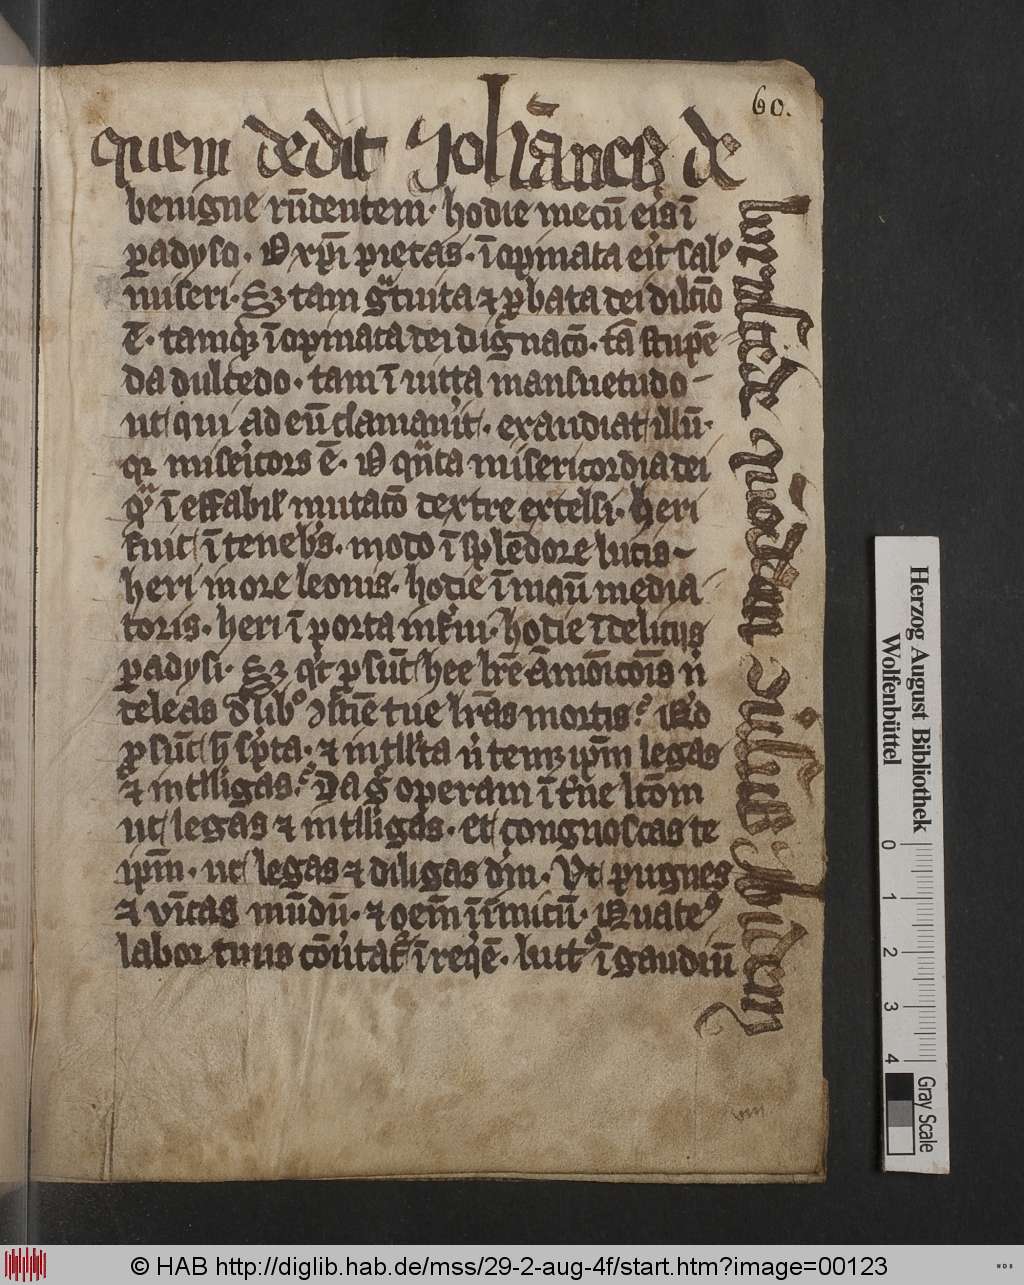 60.
quem dedit Johānes de
benigne rn̄dentem· hodie mecū eris ī
padyso· O xp̄i pietas· īopinata erit salꝰ
miseri· Sꝫ tam gͣtuita ⁊ ꝓbata dei dilc̄io
ē· tamqꝫ īopinata dei dignac̄o· tā stupē
da dulcedo· tam ī uicta mansuetudo
ut qui ad eū clamauit· exaudiat illū·
qr misericors ē· O qͣnta misericordia dei
qͣ ī effabil mutac̄o dextre excelsi· heri
fuit ī tenebris· modo ī splēdore lucis
heri in ore leonis· hodie ī manu media
toris· heri ī porta inferni· hodie ī deliciis
padysi· Sꝫ qͥd ꝓsūt hee lr̄e āmonic̄ois n̄
deleas de libꝰ ꝯsc̄ie tue lr̄as mortis·
ꝓsūt h̄ sc̄pta· ⁊ intll̄ta n̄ temꝫ ip̄m legas
⁊ intlligas· Da gͦ operam ī hac lc̄om
ut legas ⁊ intlligas· et congnoscas te
ip̄m· ut legas ⁊ diligas dm̄· Vt pugnes
⁊ vīcas mūdū· ⁊ oēm īimicū· Quatenꝰ
labor tuus cōuertat͛ ī reqͥē· luctꝰ ī gaudiū
borlstede qͦndam
Herzog August Bibliothek
Wolfenbüttel
0 1 2 3 4
Gray Scale
© HAB http://diglib.hab.de/mss/29-2-aug-4f/start.htm?image=00123